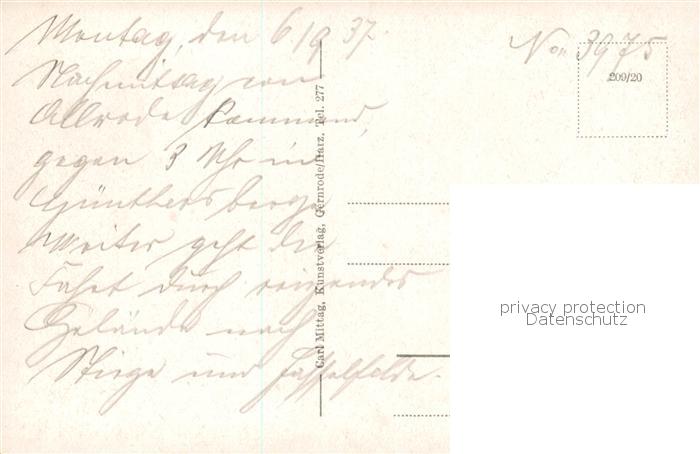 Montag, den 6./9 37.
Nachmittag von
Allrode kommend,
gegen 3 Uhr in
Günthersberge
Weiter geht die
Fahrt durch reizendes
Gelände nach
Stiege und Hasselfelde.
No 3975
209/20
Carl Mittag, Kunstverlag, Gernrode/Harz, Tel. 277
privacy protection
Datenschutz